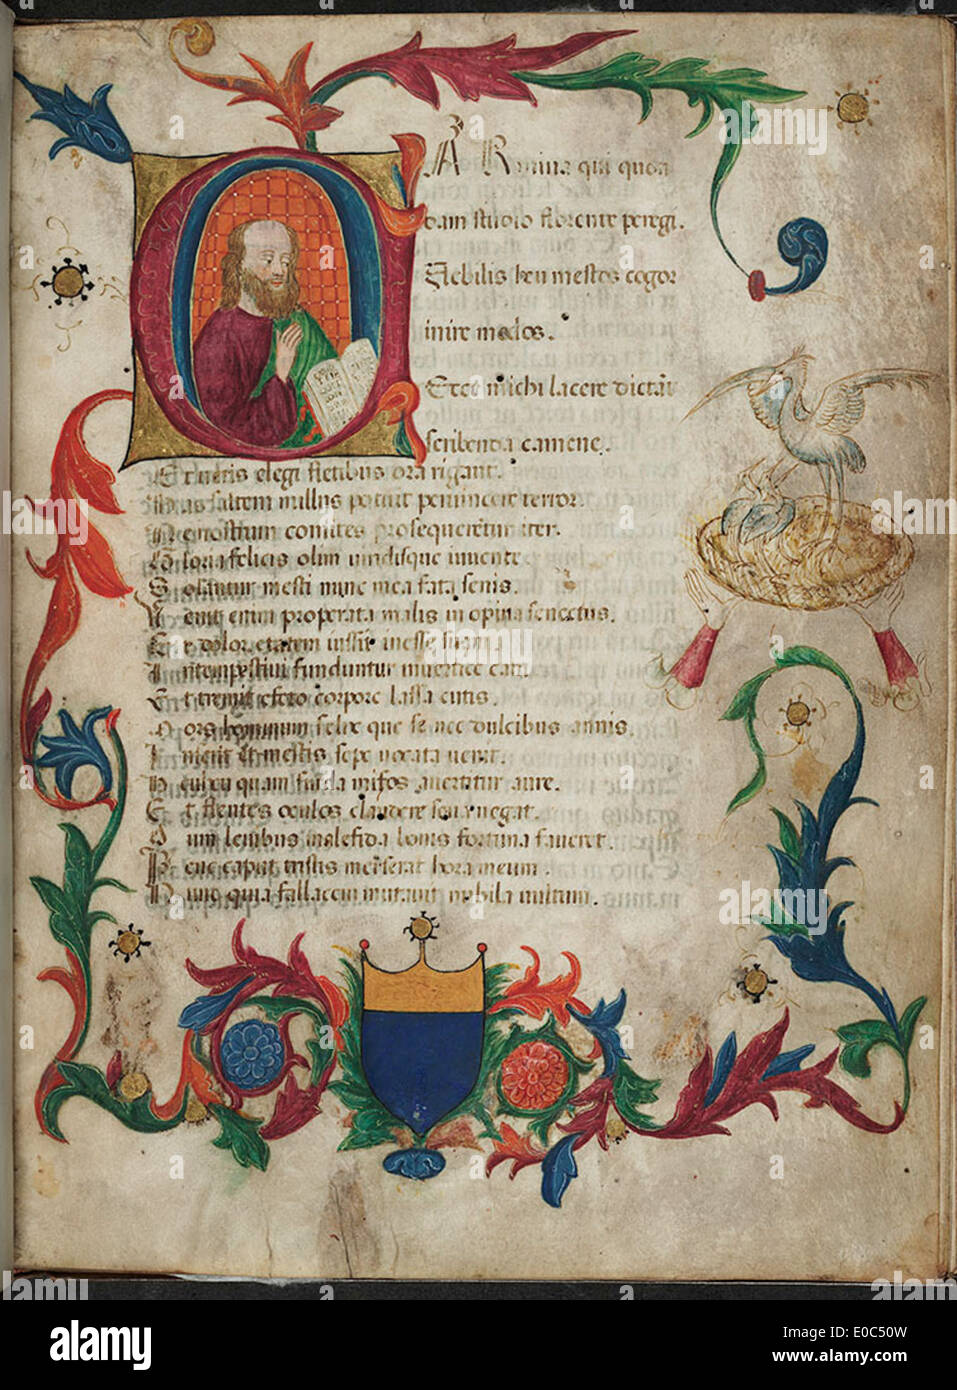 ARmina qui quon
dam studio florente peregi.
Flebilis heu mestos cogor
inire modos.
Ecce michi lacere dictāt
scribenda camene.
Et ueris elegi fletibus ora rigant.
saltem nullus potuit peruincere terror.
Ne nostrum comites prosequeretur iter.
Gloria felicis olim uiridisque iuuente
Solantur mesti nunc mea fata senis.
Venit enim properata malis in opina senectus.
Et dolor etatem iussit inesse suam
Intempestiui funduntur uertice cani
Et tremit efeto corpore lassa cutis.
Mors hominum felix que se nec dulcibus annis
Inserit et mestis sepe uocata uenit.
surda miseros auertitur aure.
Et flentes oculos claudere seua negat.
Dum leuibus malefida bonis fortuna faueret.
Pene caput tristis merserat hora meum.
Nunc quia fallacem mutauit nubila uultum.
alamy
www.alamy.com
Image ID: E0C50W